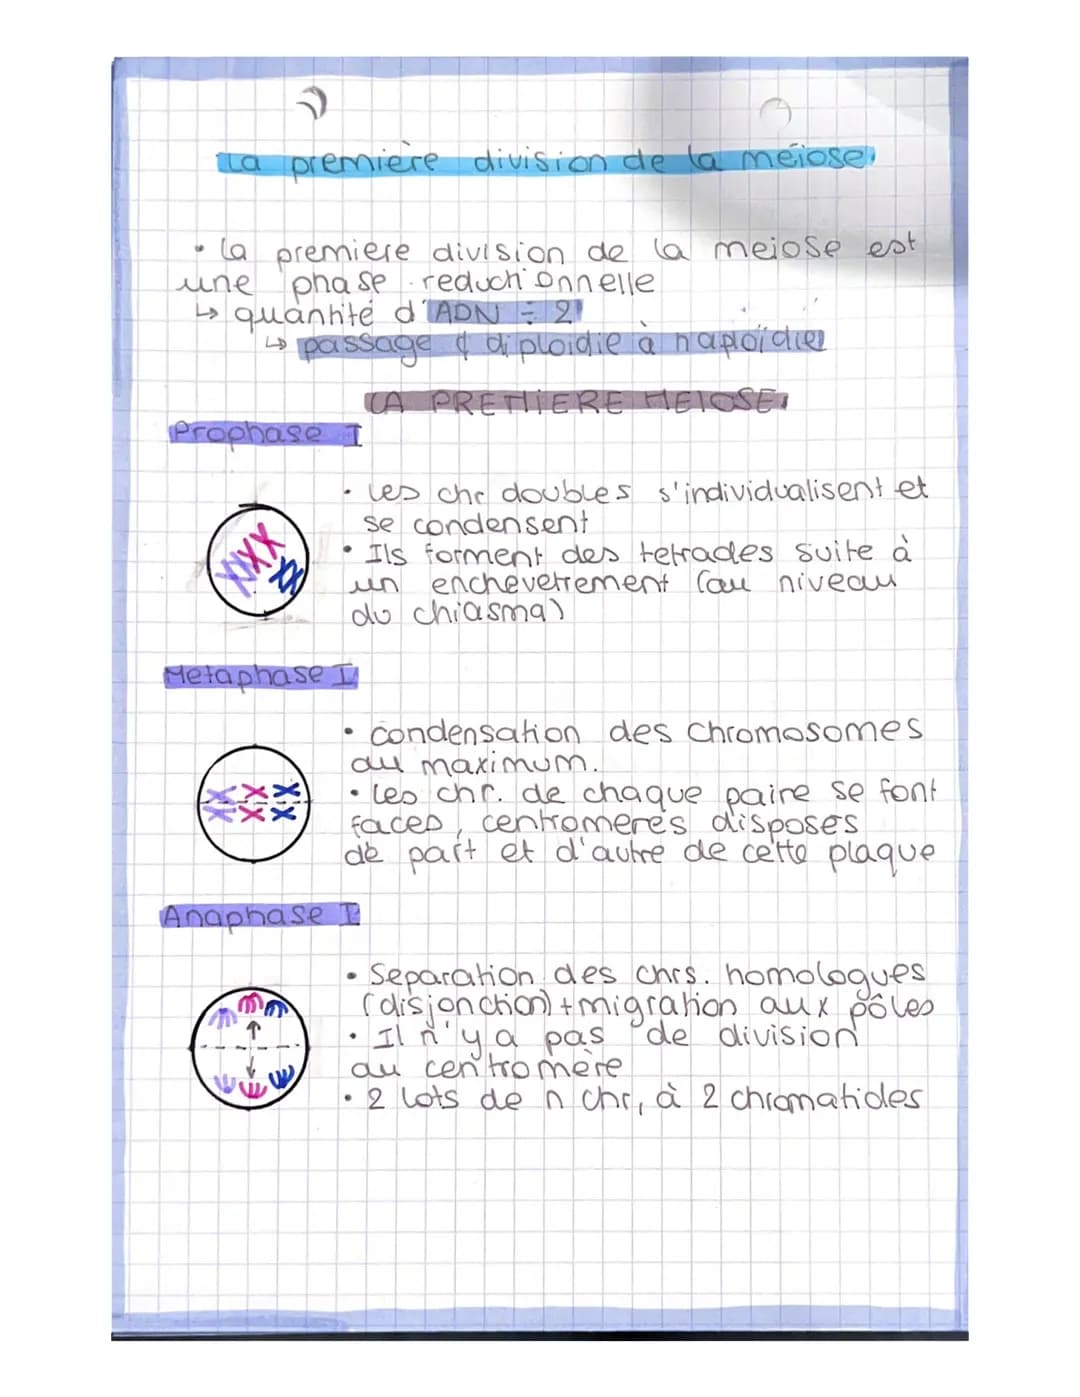 La première division de la méiose
• La premiere division de la meiose est
une phase reductionnelle
↳ quantité d'ADN ÷ 2
↳ passage d diploidie à haploïdie
LA PREMIERE MEIOSE
Prophase I
• Les chr doubles s'individualisent et
se condensent
• Ils forment des tetrades suite à
un enchevetrement (au niveau
du chiasma)
Metaphase I
• condensation des chromosomes
au maximum.
• Les chr. de chaque paire se font
faces, centromeres disposes
de part et d'autre de cette plaque
Anaphase I
• Separation des chrs. homologues
(disjonction) + migration aux pôles
• Il n'y a pas de division
au centromère
• 2 lots de n chr, à 2 chromatides